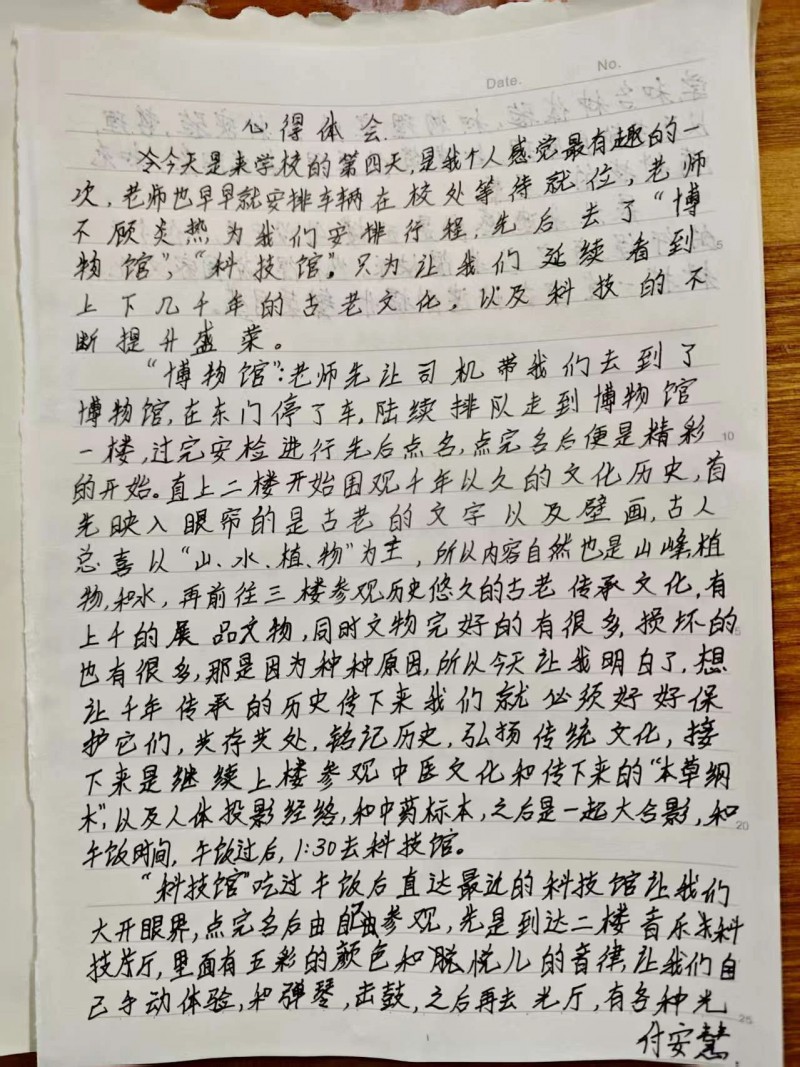 Date.
No.
心得体会
今今天是来学校的第四天,是我个人感觉最有趣的一
次,老师也早早就安排车辆在校处等待就位,老师
不顾炎热为我们安排行程,先后去了“博
物馆”,“科技馆”。只为让我们延续看到
上下几千年的古老文化,以及科技的不
断提升盛荣。
“博物馆”:老师先让司机带我们去到了
博物馆,在东门停了车,陆续排队走到博物馆
一楼,过完安检进行先后点名,点完名后便是精彩
的开始。直上二楼开始围观千年以久的文化历史,首
先映入眼帘的是古老的文字以及壁画,古人
总喜以“山、水、植、物”为主,所以内容自然也是山峰,植
物,和水,再前往三楼参观历史悠久的古老传承文化,有
上千的展品文物,同时文物完好的有很多,损坏的
也有很多,那是因为种种原因,所以今天让我明白了,想
让千年传承的历史传下来我们就必须好好保
护它们,共存共处,铭记历史,弘扬传统文化,接
下来是继续上楼参观中医文化和传下来的“本草纲
木”,以及人体投影经络,和中药标本,之后是一起大合影,和
午饭时间,午饭过后,1:30去科技馆。
“科技馆”吃过午饭后直达最边的科技馆让我们
大开眼界,点完名后由自由参观,先是到达二楼音乐科
技厅,里面有五彩的颜色和悦儿的音律,让我们自
己手动体验,和弹琴,击鼓,之后再去光厅,有各种光
付安慧
5
10
20
25
1